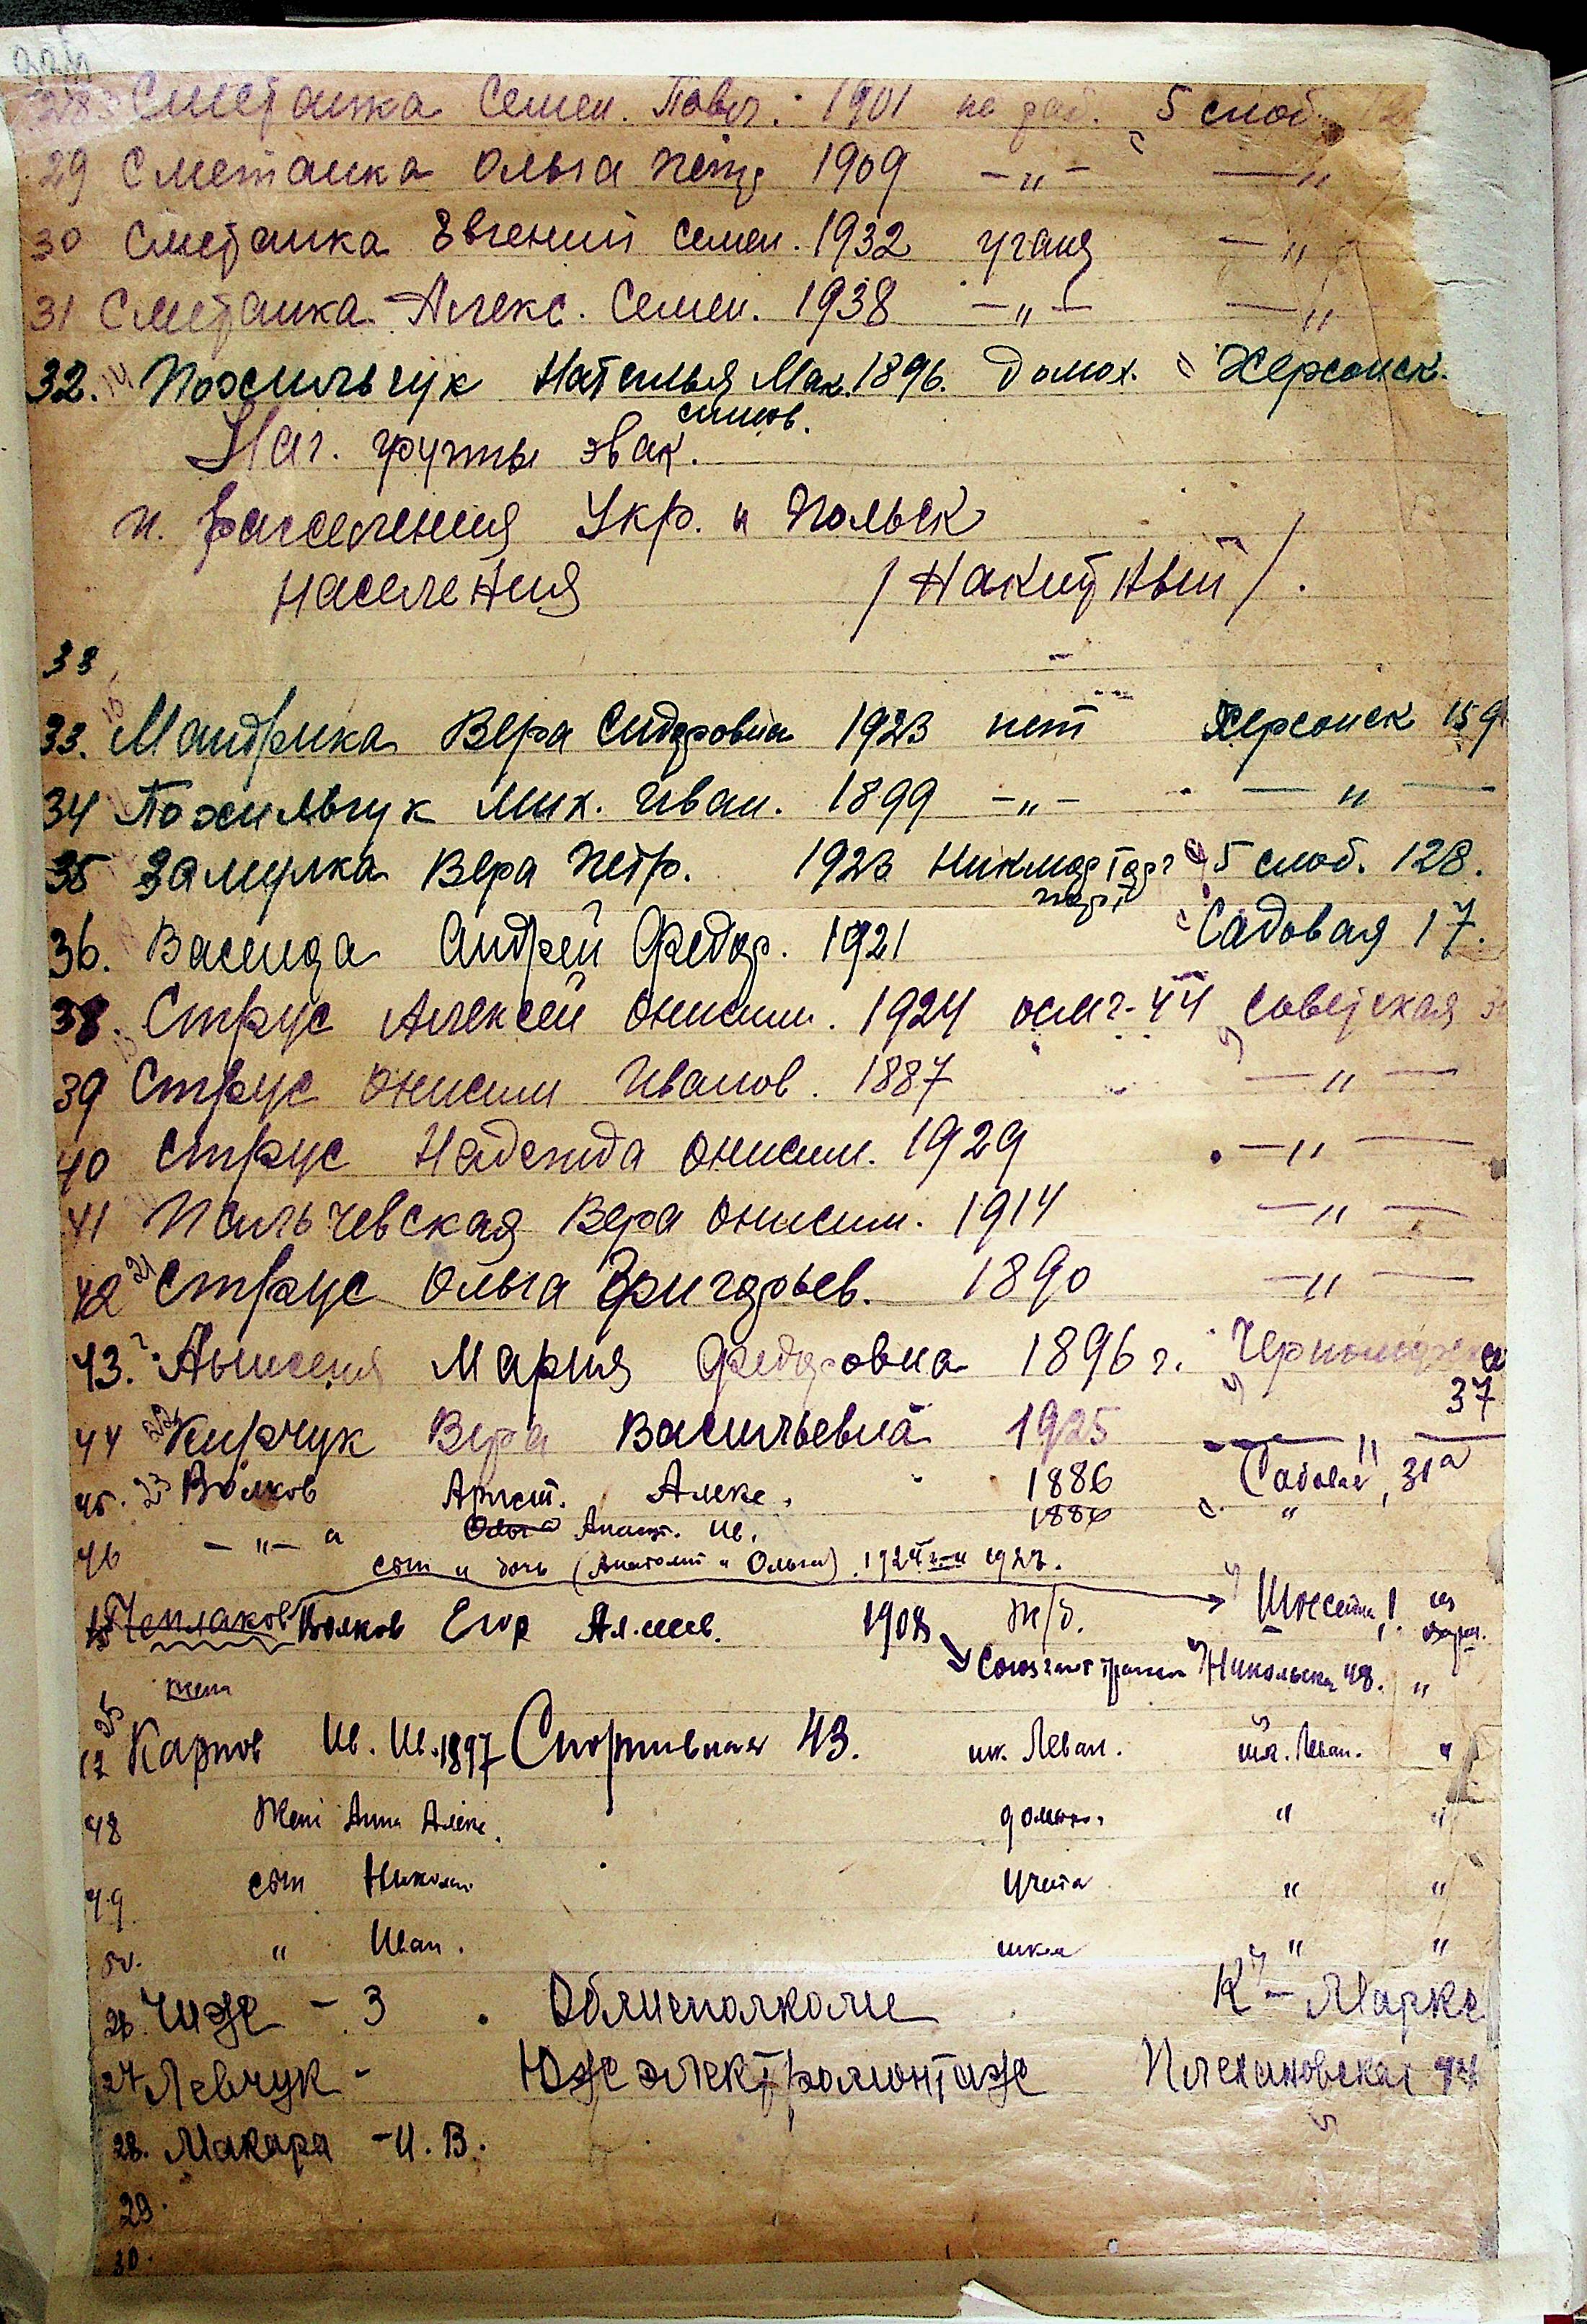 28. Сметанка Семен. Павл. 1901 не раб. 5 слоб. 12
29 Сметанка Ольга Петр 1909 —〃— —〃
30 Сметанка Евгений Семен. 1932 учащ —〃
31 Сметанка Алекс. Семен. 1938 —〃— —〃
32. Пожильчук Наталья Мак. 1896. домох. Херсонск.
симов.
Нач. группы эвак.
и расселения Укр. и Польск
населения /Накитный/.
33
33. Мандрика Вера Сидоровна 1923 нет Херсонск 159
34 Пожильчук Мих. Иван. 1899 —〃— —〃—
35 Замулка Вера Петр. 1923 5 слоб. 128.
36. Васинда Андрей Федор. 1921 Садовая 17.
38. Струс Алексей Онисим. 1924 Советская
39 Струс Онисим Иванов. 1887 —〃—
40 Струс Надежда Онисим. 1929 —〃—
41 Пальчевская Вера Онисим. 1914 —〃—
42 21 Струс Ольга Григорьев. 1890 —〃—
43. Мария Федоровна 1896 г.
37
44 22 Кирчук Вера Васильевна 1925 —〃—
45. 23 Волков Арист. Алекс. 1886 Садовая, 31а
46 —〃— а Ольга Анаст. Ив. 1886 〃
сын и дочь (Анатолий и Ольга) 1924 и 1927.
Чеплаков Волков Егор Ал. 1908 ж/д. Шоссейн, 1.
Никольская 48. 〃
жена
25
Карпов Ив. Ив. 1897 Спортивная 43. шк. Леван. шк. Леван. 〃
48 Жена Анна Алекс. домох. 〃 〃
49 сын Николай 〃 〃
50. 〃 Иван. 〃 〃
26 Чиж – 3 Облисполкоме К – Маркс
27 Левчук - Южэлектромонтаж Плехановская
28. Макара - И. В.
29.
30.